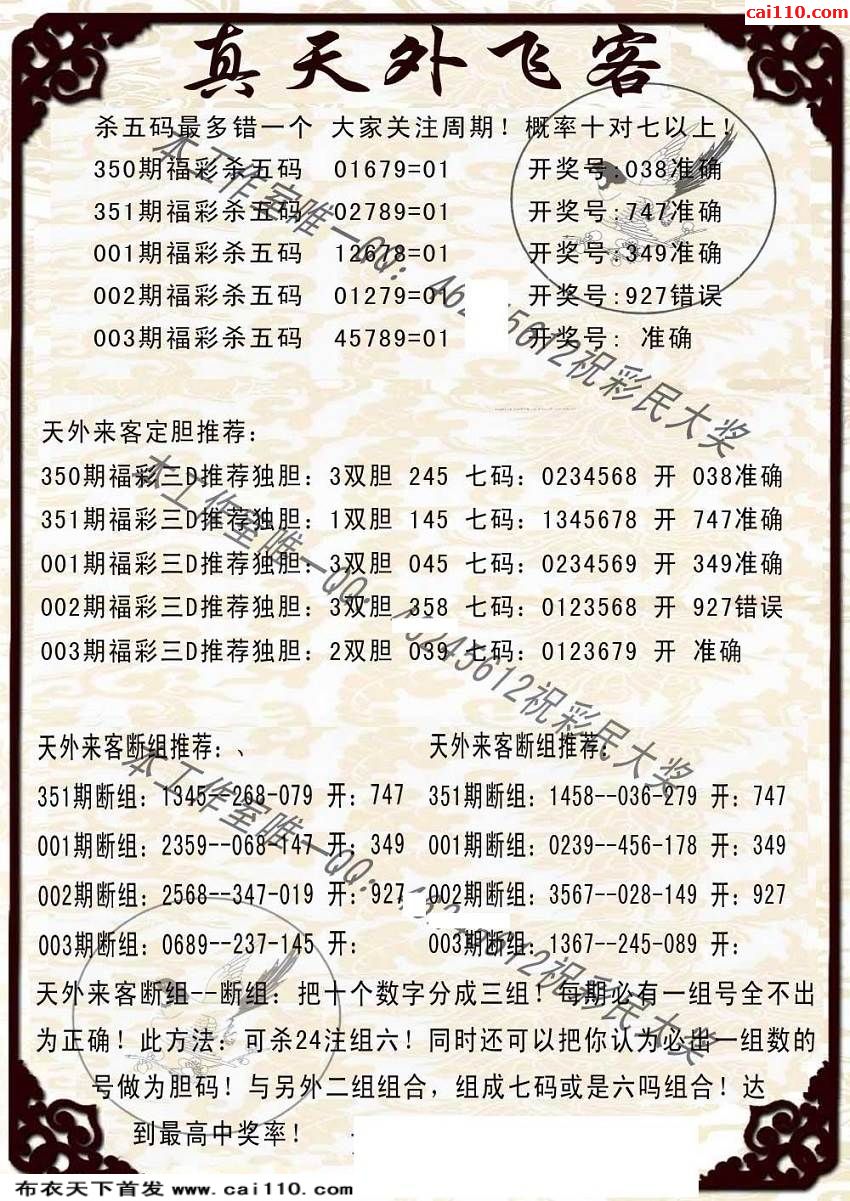 cai110.com
真天外飞客
杀五码最多错一个 大家关注周期！概率十对七以上！
350期福彩杀五码 01679=01 开奖号:038准确
351期福彩杀五码 02789=01 开奖号:747准确
001期福彩杀五码 12678=01 开奖号:349准确
002期福彩杀五码 01279=01 开奖号:927错误
003期福彩杀五码 45789=01 开奖号: 准确
天外来客定胆推荐：
350期福彩三D推荐独胆：3双胆 245 七码：0234568 开 038准确
351期福彩三D推荐独胆：1双胆 145 七码：1345678 开 747准确
001期福彩三D推荐独胆：3双胆 045 七码：0234569 开 349准确
002期福彩三D推荐独胆：3双胆 358 七码：0123568 开 927错误
003期福彩三D推荐独胆：2双胆 039 七码：0123679 开 准确
天外来客断组推荐：、 天外来客断组推荐：
351期断组：1345--268-079 开：747 351期断组：1458--036-279 开：747
001期断组：2359--068-147 开：349 001期断组：0239--456-178 开：349
002期断组：2568--347-019 开：927 002期断组：3567--028-149 开：927
003期断组：0689--237-145 开： 003期断组：1367--245-089 开：
天外来客断组--断组：把十个数字分成三组！每期必有一组号全不出
为正确！此方法：可杀24注组六！同时还可以把你认为必出一组数的
号做为胆码！与另外二组组合，组成七码或是六吗组合！达
到最高中奖率！
本工作室唯一QQ：46 5612祝彩民大奖
本工作室唯一QQ： 5245612祝彩民大奖
本工作室唯一QQ： 5612祝彩民大奖
布衣天下首发 www.cai110.com